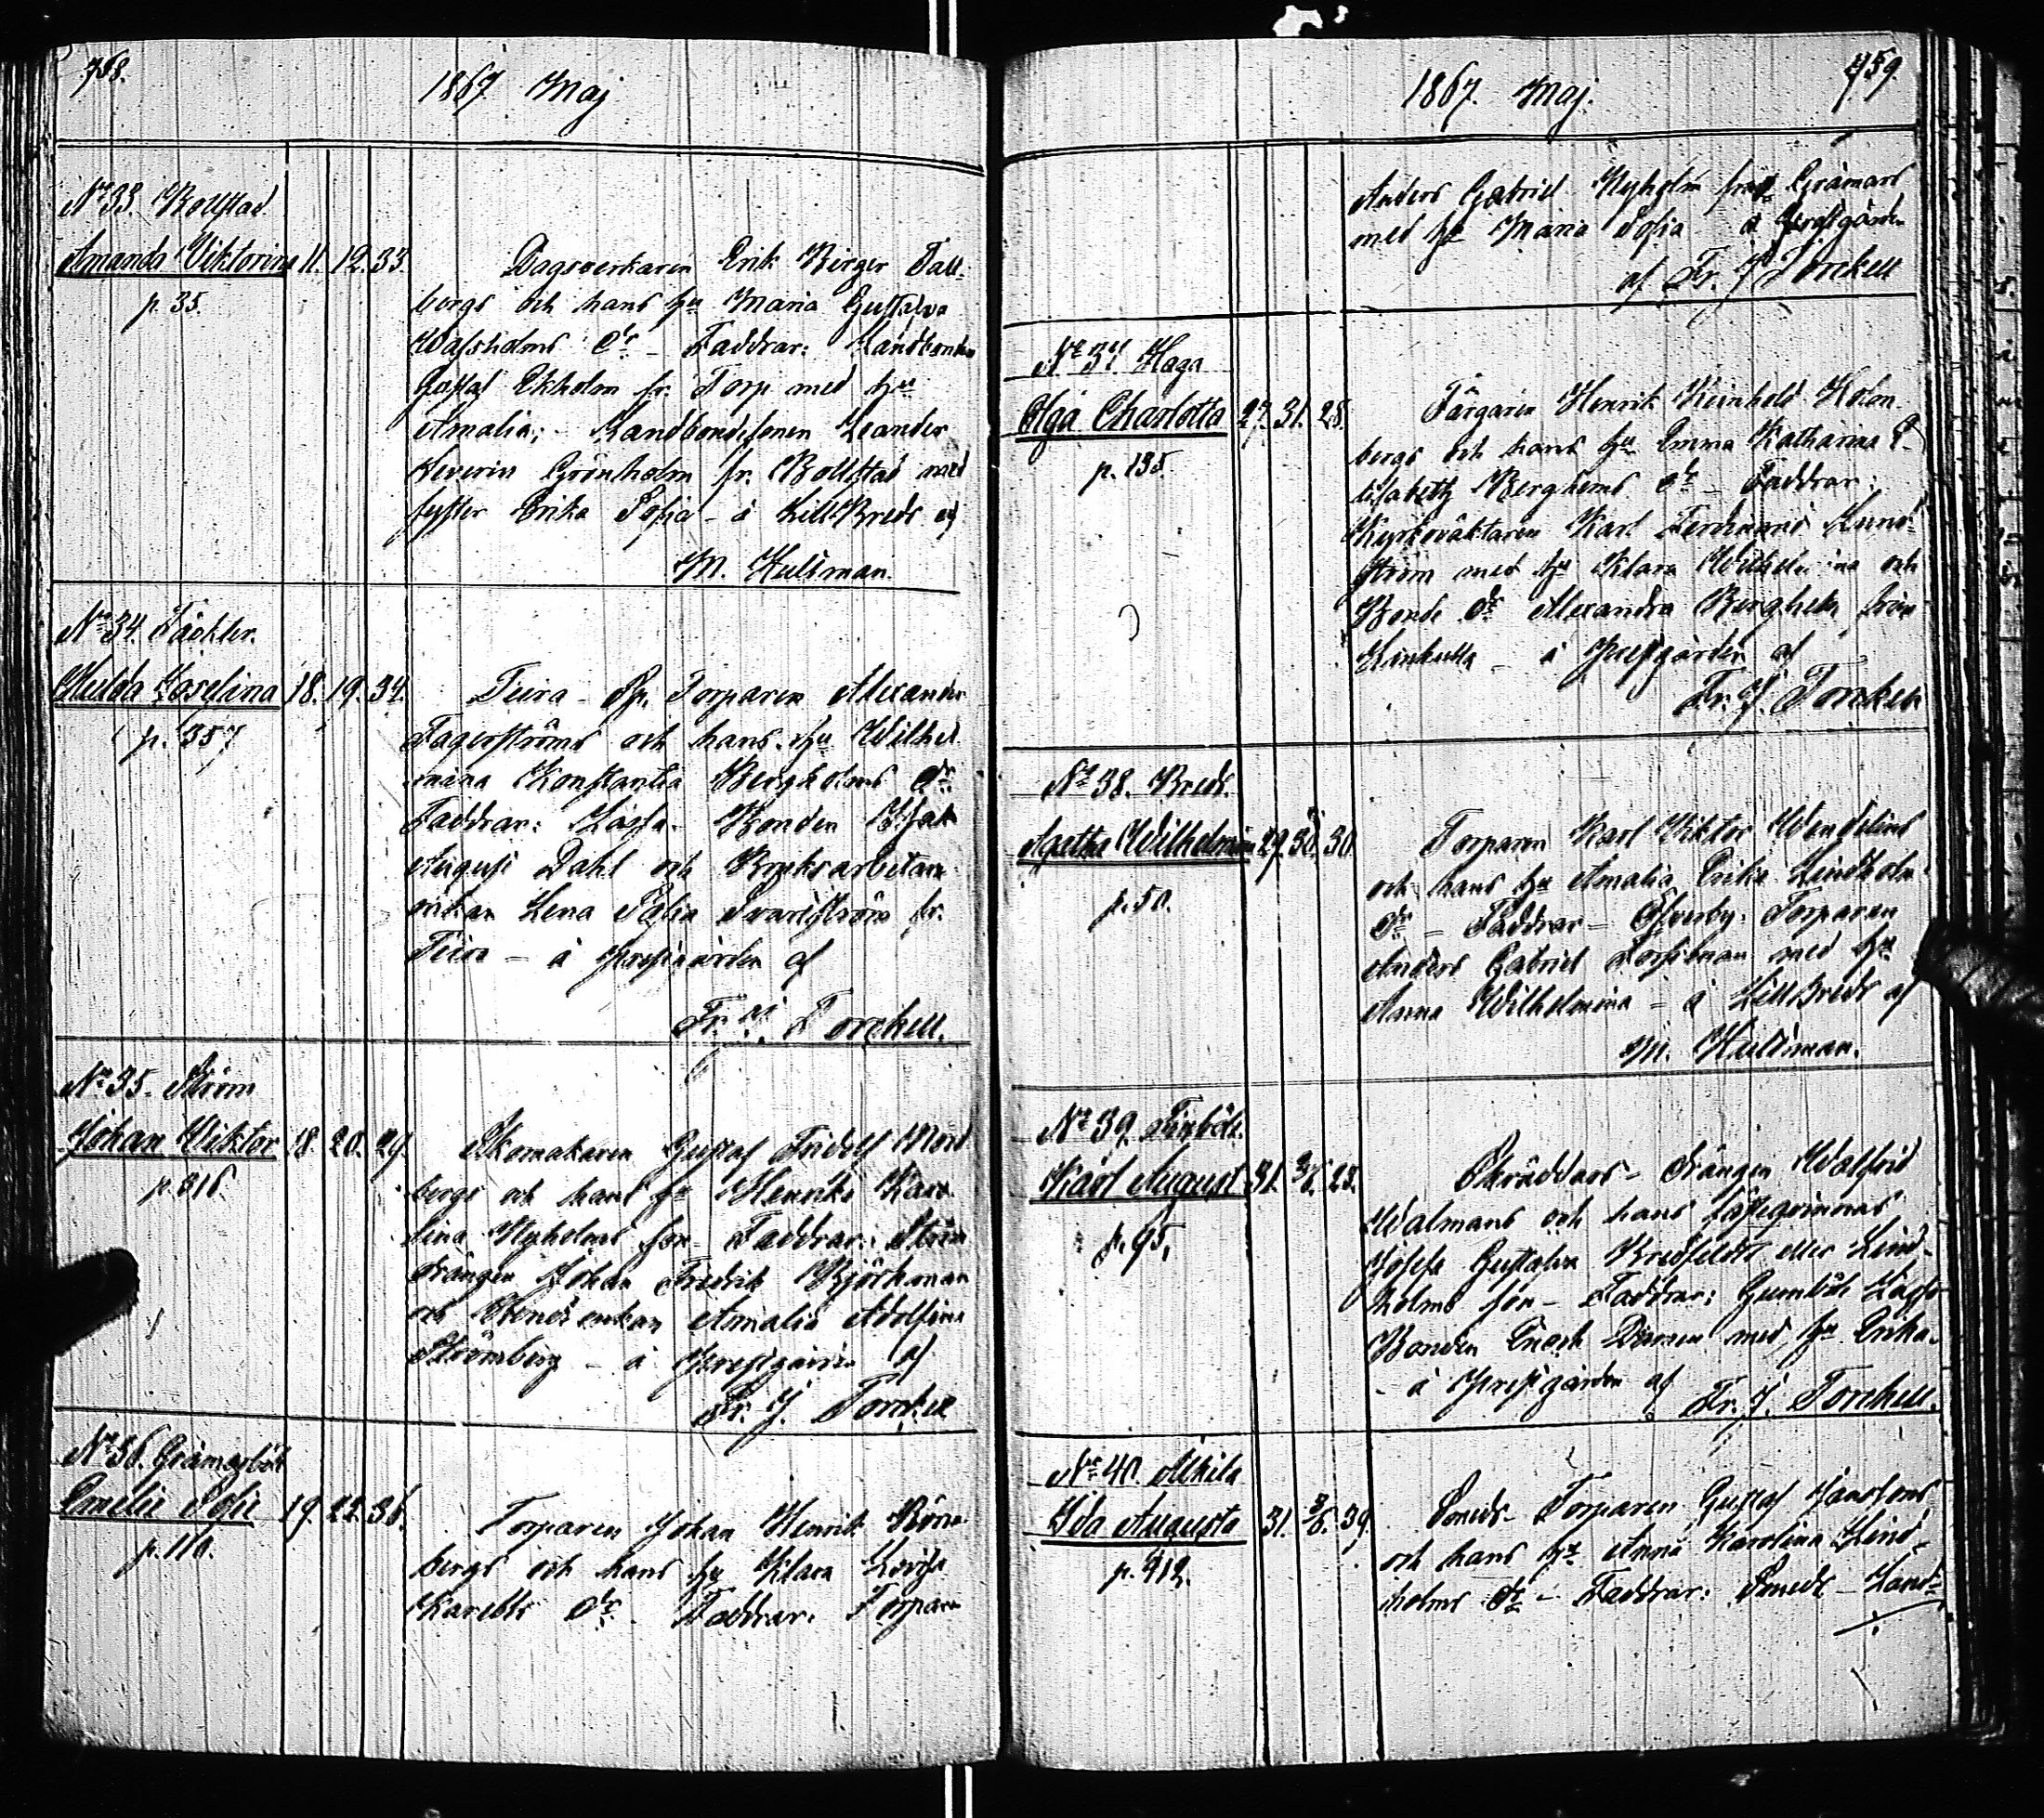 758.
1867 Maj
No 33. Bollstad
Amanda Viktorina 11. 12. 33.
p. 35.
Dagsverkaren Erik Birger Tall-
bergs och hans hu Maria Gustafva
Wassholms dr - Faddrar: Landbonden
Gustaf Ekholm fr. Torp med hu
Amalia; - Landbondesonen Leander
Severin Grönholm fr. Bollstad med
syster Erika Sofia - å LillBreds af
M. Hultman.
No 34. Täckter.
Hulda Joselina 18. 19. 34.
p. 357
Torparen Alexander
Fagerströms och hans hu Wilhel
mina Konstantia Bergholms dr
Faddrar: Bonden
August Dahl och Bruksarbetare
enkan Lena Sofia Svartström fr.
å Prestgården af
Fr. J. Torckell.
No 35. Ström
Johan Viktor 18. 20. 29.
p. 316.
Skomakaren Gustaf Fridolf Nord
bergs och hans hu Henrika Karo
lina Nyholms son - Faddrar: Ström
drängen Johan Fredrik Björkman
och enkan Amalia Adolfina
Strömberg - å Prestgården af
Fr. J. Torckell
No 36. Gråmarsböle
Emelie Sofie 19. 22. 36.
p. 110.
Torparen Johan Henrik Rönn
bergs och hans hu Klara Lovisa
dr - Faddrar: Torpare
759.
1867. Maj.
Anders Gabriel Nyholm från Gråmars
med hu Maria Sofia - å Prestgården
af Fr. J. Torckell
No 37. Haga
Olga Charlotta 27. 31. 28.
p. 135.
Färgaren Henrik Reinhold Holm-
bergs och hans hu Emma Katharina E-
lisabeth Berghems dr - Faddrar:
Kyrkoväktaren Karl Ferdinand Lund-
ström med hu Klara Wilhelmina och
Bonde dr Alexandra Berghem från
- å Prestgården af
Fr. J. Torckell
No 38. Breds.
Agatha Wilhelmina 29. 30. 30.
p. 50.
Torparen Karl Viktor Wendelins
och hans hu Amalia Erika Lindholms
dr - Faddrar - Öfverby Torparen
Anders Gabriel Forsman med hu
Anna Wilhelmina - å LillBreds af
M. Hultman.
No 39. Finböle.
Karl August 31. 3/6. 23.
p. 95.
Skräddars-Drängen Walfrid
Walmans och hans fästeqvinnas
Josefa Gustafva Bredfeldts eller Lind-
holms son - Faddrar: Gumböle
Bonden Enoch med hu Erika.
- å Prestgården af Fr. J. Torckell.
No 40. Alkila
Ida Augusta 31. 3/6. 39.
p. 312.
Smeds-Torparen Gustaf Janssons
och hans hu Anna Karolina Lind-
holms dr - Faddrar: Smeds - Land-